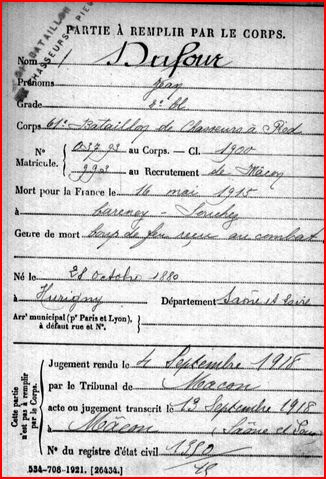 BATAILLON
CHASSEURS A PIED
PARTIE À REMPLIR PAR LE CORPS.
Nom Dufour
Prénoms Jean
Grade 2e Cl
Corps 61e Bataillon de Chasseurs à Pied
N° 03793 au Corps. — Cl. 1900
Matricule. 992 au Recrutement de Mâcon
Mort pour la France le 16 mai 1915
à Carency - Souchez
Genre de mort Coup de feu reçu au combat
Né le 28 Octobre 1880
à Hurigny Département Saône et Loire
Arr¹ municipal (p¹ Paris et Lyon),
à défaut rue et N°.
Cette partie
n'est pas à remplir
par le Corps.
Jugement rendu le 4 Septembre 1918
par le Tribunal de Macon
acte ou jugement transcrit le 13 Septembre 1918
à Mâcon (Saône et Loire
N° du registre d'état civil
534-708-1921. [26434.]